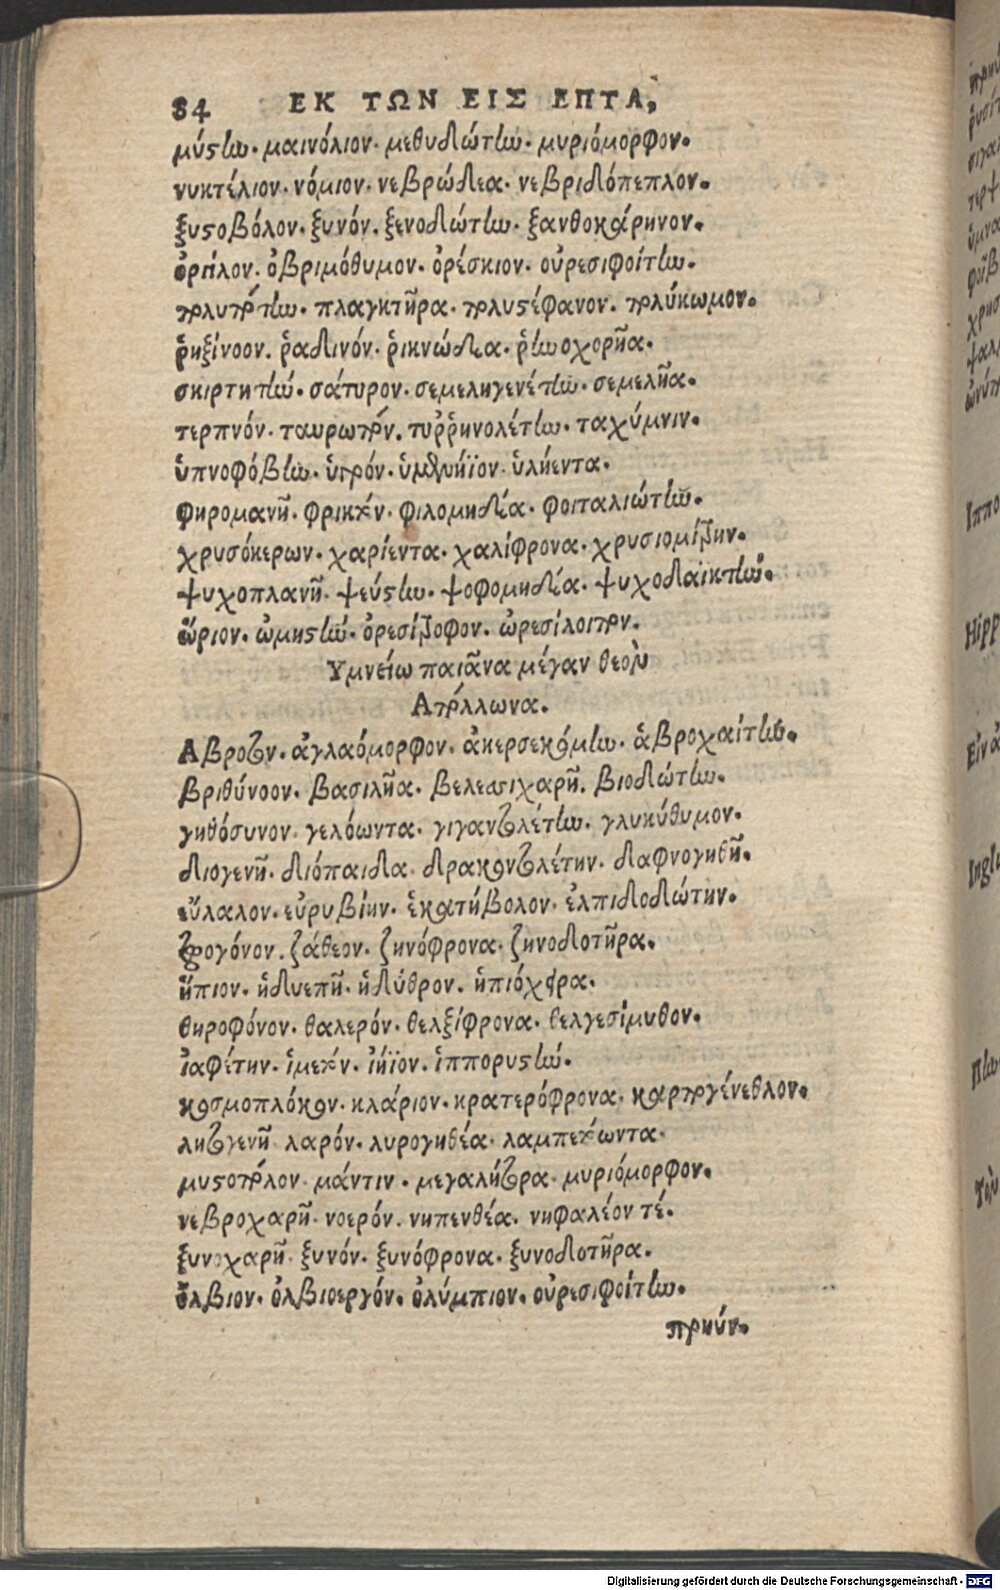 84 ΕΚ ΤΩΝ ΕΙΣ ΕΠΤΑ,
μύστην· μαινόλιον· μεθυδώτην· μυριόμορφον.
νυκτέλιον· νόμιον· νεβρώδεα· νεβριδόπεπλον.
ξυστοβόλον· ξυνόν. ξενοδώτην· ξανθοκάρηνον.
ὀργίλον· ὀβριμόθυμον· ὀρέσκιον· οὐρεσιφοίτην.
πουλυπότην· πλαγκτῆρα· πολυστέφανον. πολύκωμον.
ῥηξίνοον. ῥαδινόν· ῥικνώδεα· ῥηνοχορῆα.
σκιρτητήν· σάτυρον· σεμεληγενέτην· σεμελῆα.
τερπνόν· ταυρωπόν. τυῤῥηνολέτην· ταχύμηνιν.
ὑπνοφόβην· ὑγρόν· ὑμενήϊον· ὑλήεντα.
φηρομανῆ· φρικτόν· φιλομηδέα· φοιταλιώτην.
χρυσόκερων· χαρίεντα· χαλίφρονα· χρυσιομίτρην.
ψυχοπλανῆ· ψεύστην· ψοφομηδέα· ψυχοδαϊκτήν.
ὥριον· ὠμηστήν· ὀρεσίτροφον. ὠρεσίδουπον.
Υμνείω παιᾶνα μέγαν θεὸν
Απόλλωνα.
Αβροτον. ἀγλαόμορφον· ἀκερσεκόμην· ἁβροχαίτην.
βριθύνοον· βασιλῆα· βελεσσιχαρῆ. βιοδώτην.
γηθόσυνον· γελόωντα· γιγαντολέτην. γλυκύθυμον.
διογενῆ. διόπαιδα· δρακοντολέτην. δαφνογηθῆ.
εὔλαλον· εὐρυβίην· ἑκατήβολον· ἐλπιδοδώτην.
ζωογόνον. ζάθεον· ζηνόφρονα· ζηνοδοτῆρα.
ἤπιον· ἡδυεπῆ· ἡδύθρον. ἠπιόχειρα.
θηροφόνον· θαλερόν· θελξίφρονα· θελγεσίμυθον.
ἰαφέτην· ἱμερτόν. ἰήϊον· ἱππορυστήν.
κοσμοπλόκον· κλάριον· κρατερόφρονα· καρπογένεθλον.
λητογενῆ· λαρόν· λυρογηθέα· λαμπετόωντα.
μυστοπόλον· μάντιν· μεγαλήτορα· μυριόμορφον.
νεβροχαρῆ· νοερόν. νηπενθέα· νηφαλέον τέ.
ξυνοχαρῆ· ξυνόν· ξυνόφρονα· ξυνοδοτῆρα.
ὄλβιον· ὀλβιοεργόν. ὀλύμπιον. οὐρεσιφοίτην.
πρηύν.
Digitalisierung gefördert durch die Deutsche Forschungsgemeinschaft - DFG